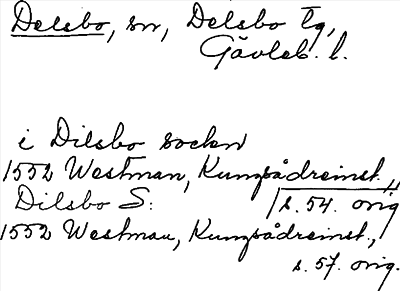 Delsbo, sn, Delsbo tg,
Gävleb. l.
i Dilsbo socken
1552 Westman, Kungsådreinst.,
Dilsbo S: s. 54. orig
1552 Westman, Kungsådreinst.,
s. 57. orig.